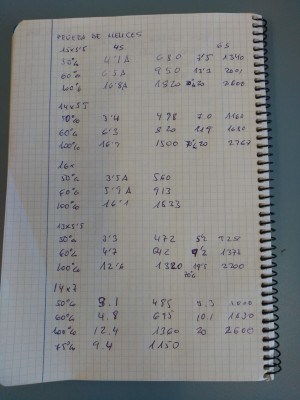 PRUEBA DE HELICES
4S 6S
50% 4'1A 680 7'5 1340
60% 950 2000
100% 16'8A 1820 2600
14x5'5
50% 3'4 498 7.0 1160
60% 6'3 820 11'9 1680
100% 16'7 1500 20 2760
16x
50% 3'5A 560
60% 5'9A 913
100% 16'1 1633
13x5'5
50% 3'3 472 5'2 925
60% 4'7 642 9'2 1372
100% 12'6 1320 19'5 2700
14x7
50% 3.1 485 5.3
60% 4.8 695 10.1 1630
100% 12.4 1360 20 2600
75% 9.4 1150